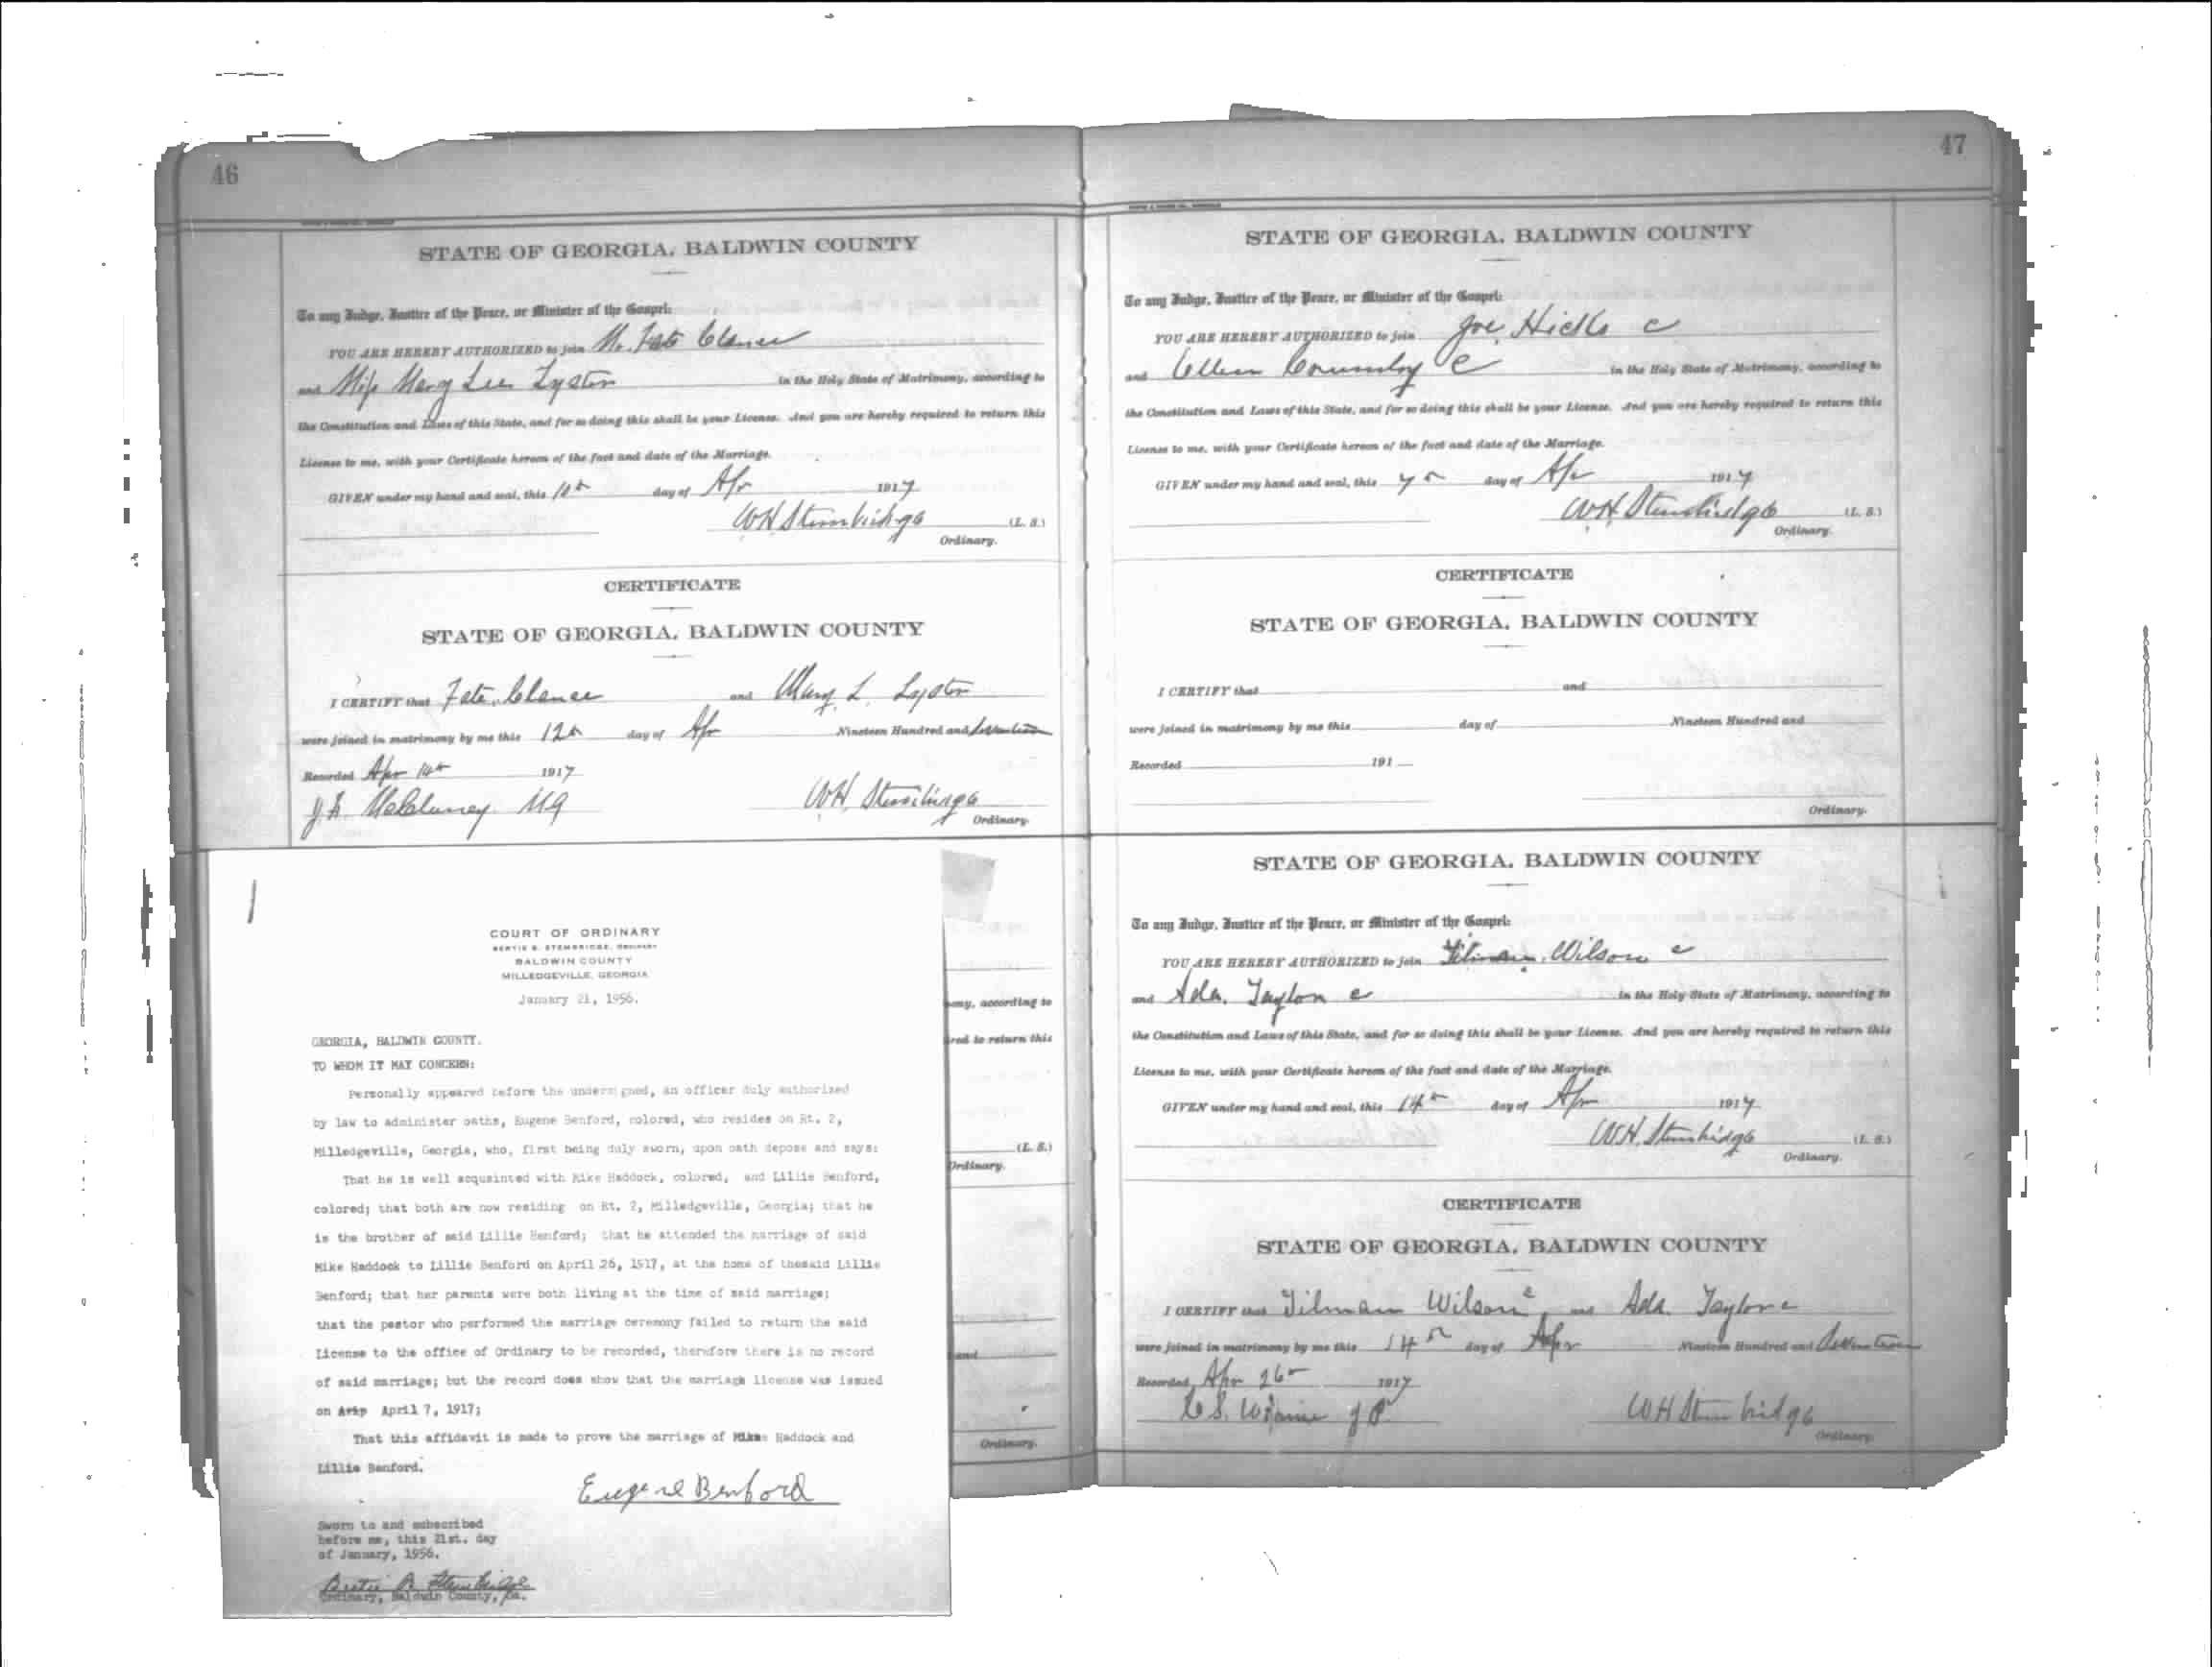 46
STATE OF GEORGIA, BALDWIN COUNTY
To any Judge, Justice of the Peace, or Minister of the Gospel:
YOU ARE HEREBY AUTHORIZED to join Mr. Fate
and Miss Mary Lee Lyston in the Holy State of Matrimony, according to
the Constitution and Laws of this State, and for so doing this shall be your License. And you are hereby required to return this
License to me, with your Certificate hereon of the fact and date of the Marriage.
GIVEN under my hand and seal, this day of Apr 1917
WH Stembridge (L. S.)
Ordinary.
CERTIFICATE
STATE OF GEORGIA, BALDWIN COUNTY
I CERTIFY that Fate and Mary L. Lyston
were joined in matrimony by me this 12th day of Apr Nineteen Hundred and Seventeen
Recorded Apr 14th 1917
MG WH Stembridge
Ordinary.
COURT OF ORDINARY
BERTIE B. STEMBRIDGE, ORDINARY
BALDWIN COUNTY
MILLEDGEVILLE, GEORGIA
January 21, 1956.
GEORGIA, BALDWIN COUNTY.
TO WHOM IT MAY CONCERN:
Personally appeared before the undersigned, an officer duly authorized
by law to administer oaths, Eugene Benford, colored, who resides on Rt. 2,
Milledgeville, Georgia, who, first being duly sworn, upon oath depose and says:
That he is well acquainted with Mike Haddock, colored, and Lillie Benford,
colored; that both are now residing on Rt. 2, Milledgeville, Georgia; that he
is the brother of said Lillie Benford; that he attended the marriage of said
Mike Haddock to Lillie Benford on April 26, 1917, at the home of thesaid Lillie
Benford; that her parents were both living at the time of said marriage;
that the pastor who performed the marriage ceremony failed to return the said
License to the office of Ordinary to be recorded, therefore there is no record
of said marriage; but the record does show that the marriage license was issued
on April 7, 1917;
That this affidavit is made to prove the marriage of Mike Haddock and
Lillie Benford.
Eugene Benford
Sworn to and subscribed
before me, this 21st. day
of January, 1956.
Bertie B. Stembridge
Ordinary, Baldwin County, Ga.
ony, according to
red to return this
(L. S.)
Ordinary.
and
Ordinary.
47
STATE OF GEORGIA, BALDWIN COUNTY
To any Judge, Justice of the Peace, or Minister of the Gospel:
YOU ARE HEREBY AUTHORIZED to join Joe Hicks c
and c in the Holy State of Matrimony, according to
the Constitution and Laws of this State, and for so doing this shall be your License. And you are hereby required to return this
License to me, with your Certificate hereon of the fact and date of the Marriage.
GIVEN under my hand and seal, this 7th day of Apr 1917
WH Stembridge (L. S.)
Ordinary.
CERTIFICATE
STATE OF GEORGIA, BALDWIN COUNTY
I CERTIFY that and
were joined in matrimony by me this day of Nineteen Hundred and
Recorded 191
Ordinary.
STATE OF GEORGIA, BALDWIN COUNTY
To any Judge, Justice of the Peace, or Minister of the Gospel:
YOU ARE HEREBY AUTHORIZED to join Tilman Wilson c
and Ada Taylor c in the Holy State of Matrimony, according to
the Constitution and Laws of this State, and for so doing this shall be your License. And you are hereby required to return this
License to me, with your Certificate hereon of the fact and date of the Marriage.
GIVEN under my hand and seal, this 14th day of Apr 1917
WH Stembridge (L. S.)
Ordinary.
CERTIFICATE
STATE OF GEORGIA, BALDWIN COUNTY
I CERTIFY that Tilman Wilson c and Ada Taylor c
were joined in matrimony by me this 14th day of Apr Nineteen Hundred and Seventeen
Recorded Apr 26th 1917
JP WH Stembridge
Ordinary.